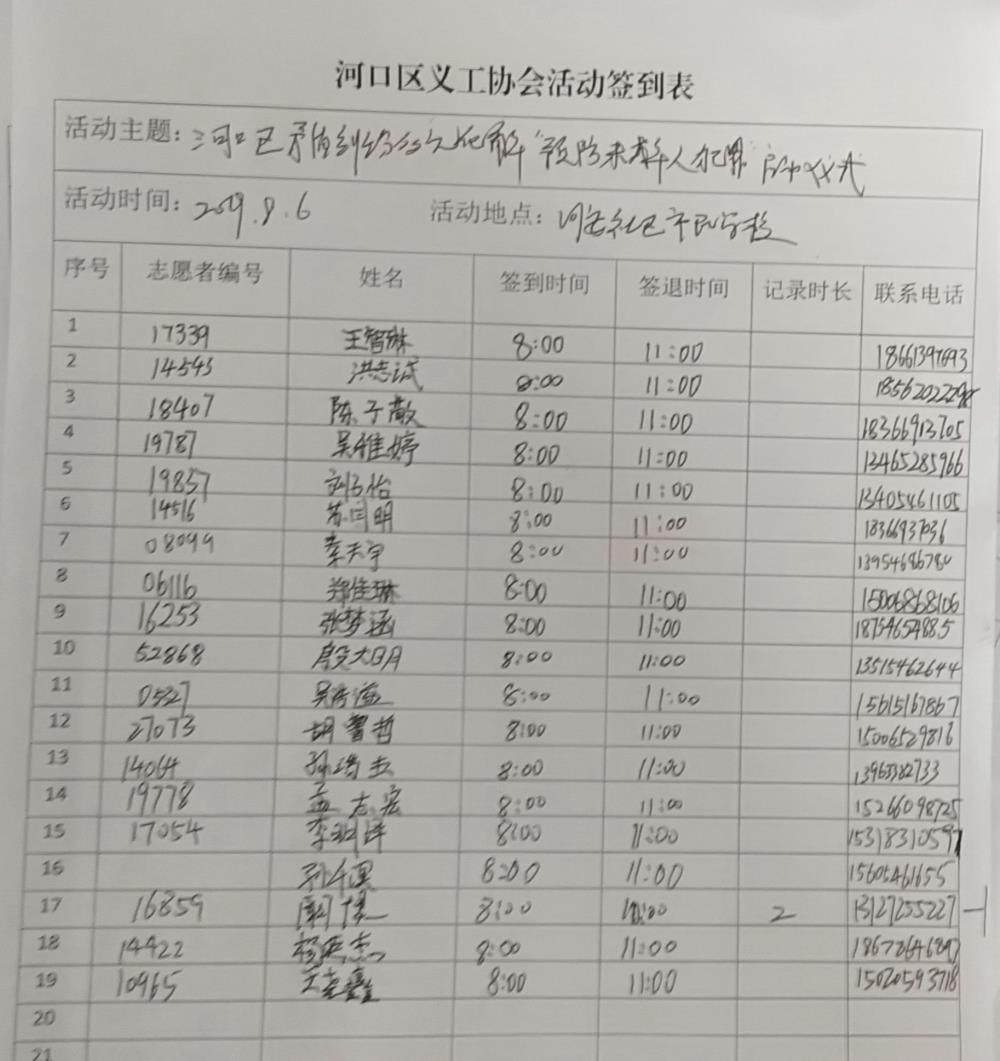 河口区义工协会活动签到表
活动主题: 河口区矛盾纠纷 化解 "预防未成年人犯罪" 仪式
活动时间: 2019.8.6 活动地点: 社区市民学校
序号 志愿者编号 姓名 签到时间 签退时间 记录时长 联系电话
1 17339 王智琳 8:00 11:00 18661397693
2 14543 洪志诚 8:00 11:00
3 18407 陈子敬 8:00 11:00 18366913705
4 19787 吴雅婷 8:00 11:00 13465285966
5 19857 刘子怡 8:00 11:00 13405461105
6 14516 苏同明 8:00 11:00
7 08099 秦天宇 8:00 11:00 13954686780
8 06116 郑佳琳 8:00 11:00 15006868106
9 16253 张梦涵 8:00 11:00 18754654885
10 52868 殷大明 8:00 11:00 13515462644
11 0527 8:00 11:00 15615167867
12 27073 胡智哲 8:00 11:00 15006529816
13 14064 孙瑞杰 8:00 11:00
14 19778 孟志宏 8:00 11:00 15266098725
15 17054 李明泽 8:00 11:00 15318310597
16 8:00 11:00 15605461655
17 16859 8:00 10:00 2 13127255227
18 14422 杨英杰 8:00 11:00
19 10965 8:00 11:00 15020593718
20
21